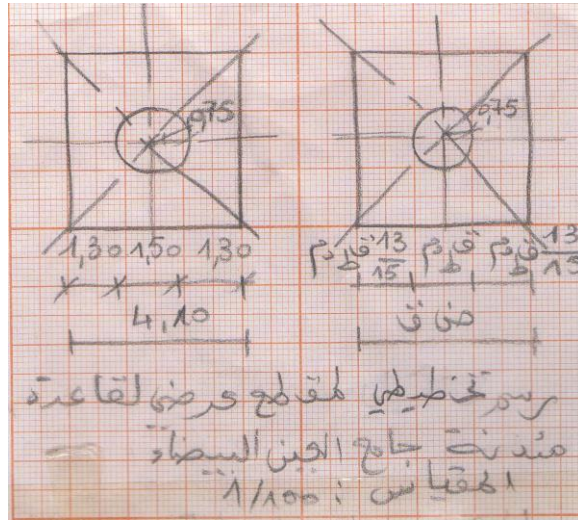 0,75
0,75
1,30 1,50 1,30
4,10
13/15 ق ط د م ق ط د م 13/15 ق ط د م
ض ق
رسم تخطيطي لمقطع عرضي لقاعدة
مئذنة جامع الجبن البيضاء
المقياس : 1/100